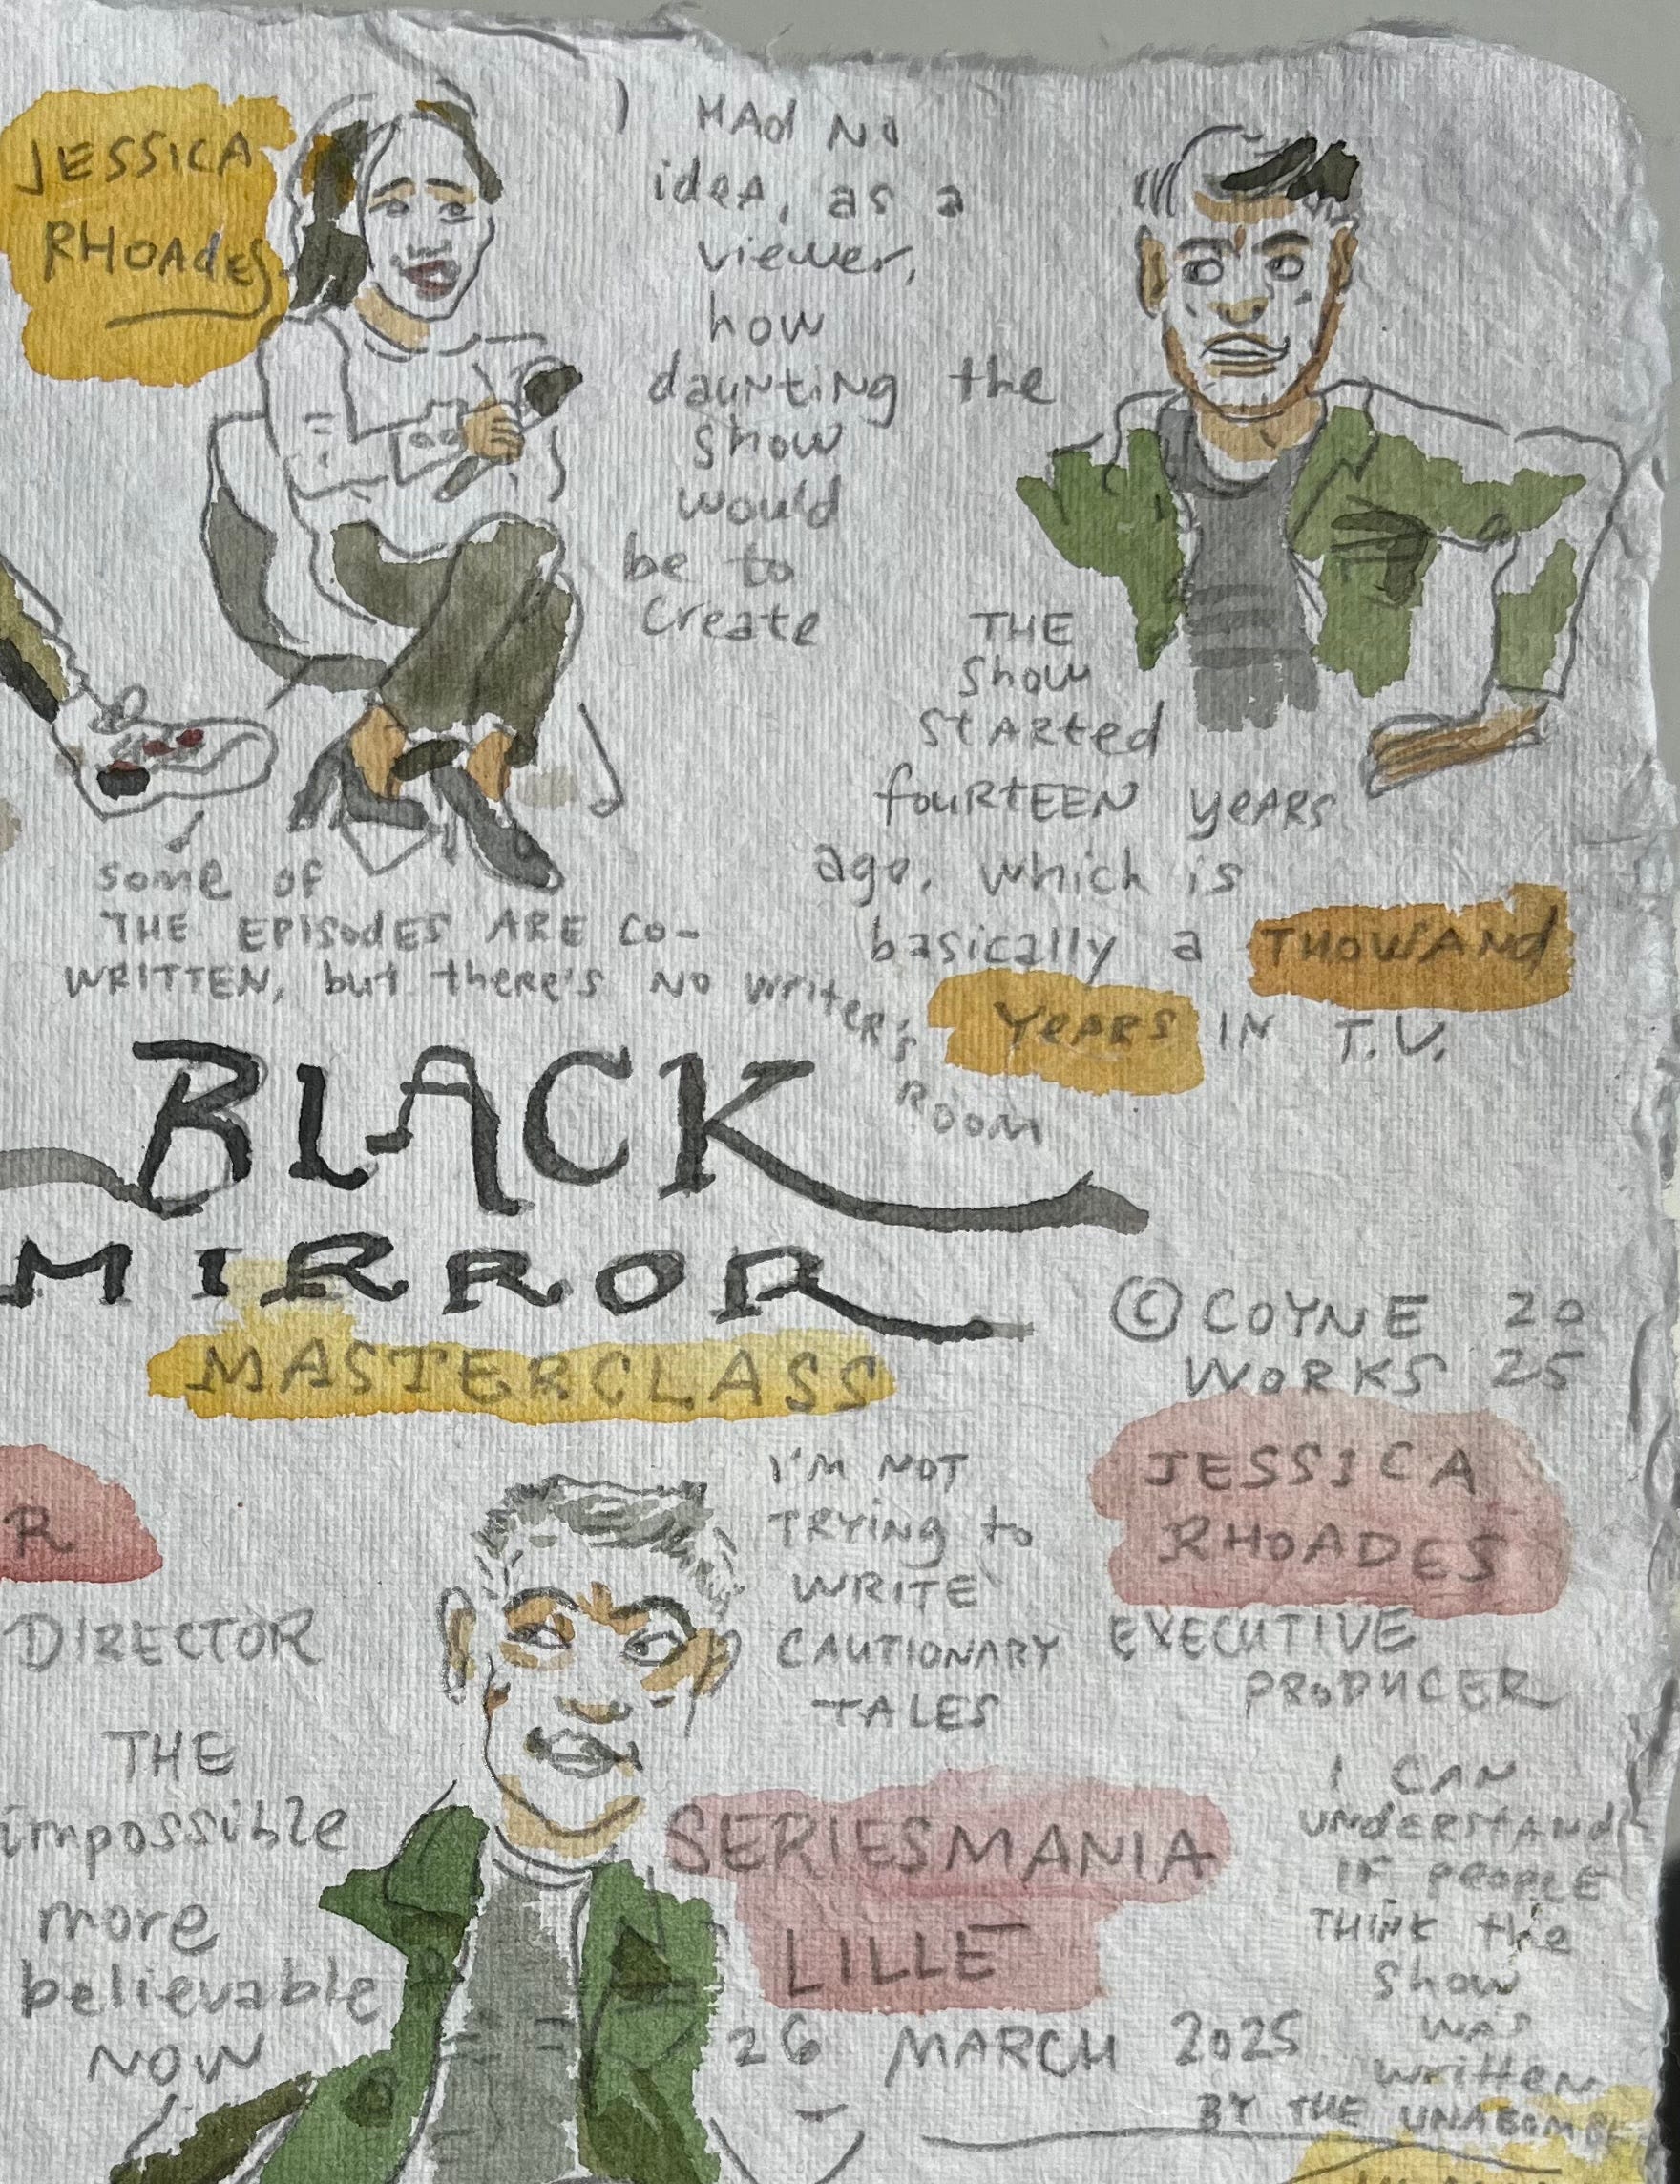 JESSICA
RHOAdES
I HAd NO
ideA, as a
viewer,
how
dauNtiNg the
show
would
be to
create
THE
show
stARted
fouRtEEN yeARS
ago, which is
basically a THOUSANd
YeARS IN T.V.
some of
THE EPISOdES ARE CO-
WRITTEN, but theRe's NO writeR's
ROOM
BLACK
MIRROR
MASTERCLASS
© COYNE 20
WORKS 25
JESSICA
RHOADES
EXECUTIVE
PRODUCER
R
DIRECTOR
THE
impossible
more
believable
NOW
I'M NOT
TRYiNg to
WRITE
CAUTIONARY
TALES
SERIESMANIA
LILLE
26 MARCH 2025
I CAN
UNdERstANd
IF PEOPLE
THINK the
show
was
written
BY THE UNABOMBE